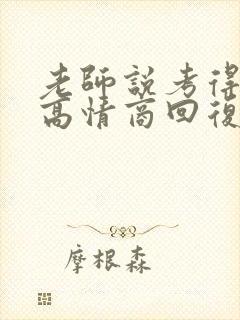 老師說考得
高情商回復
摩根森